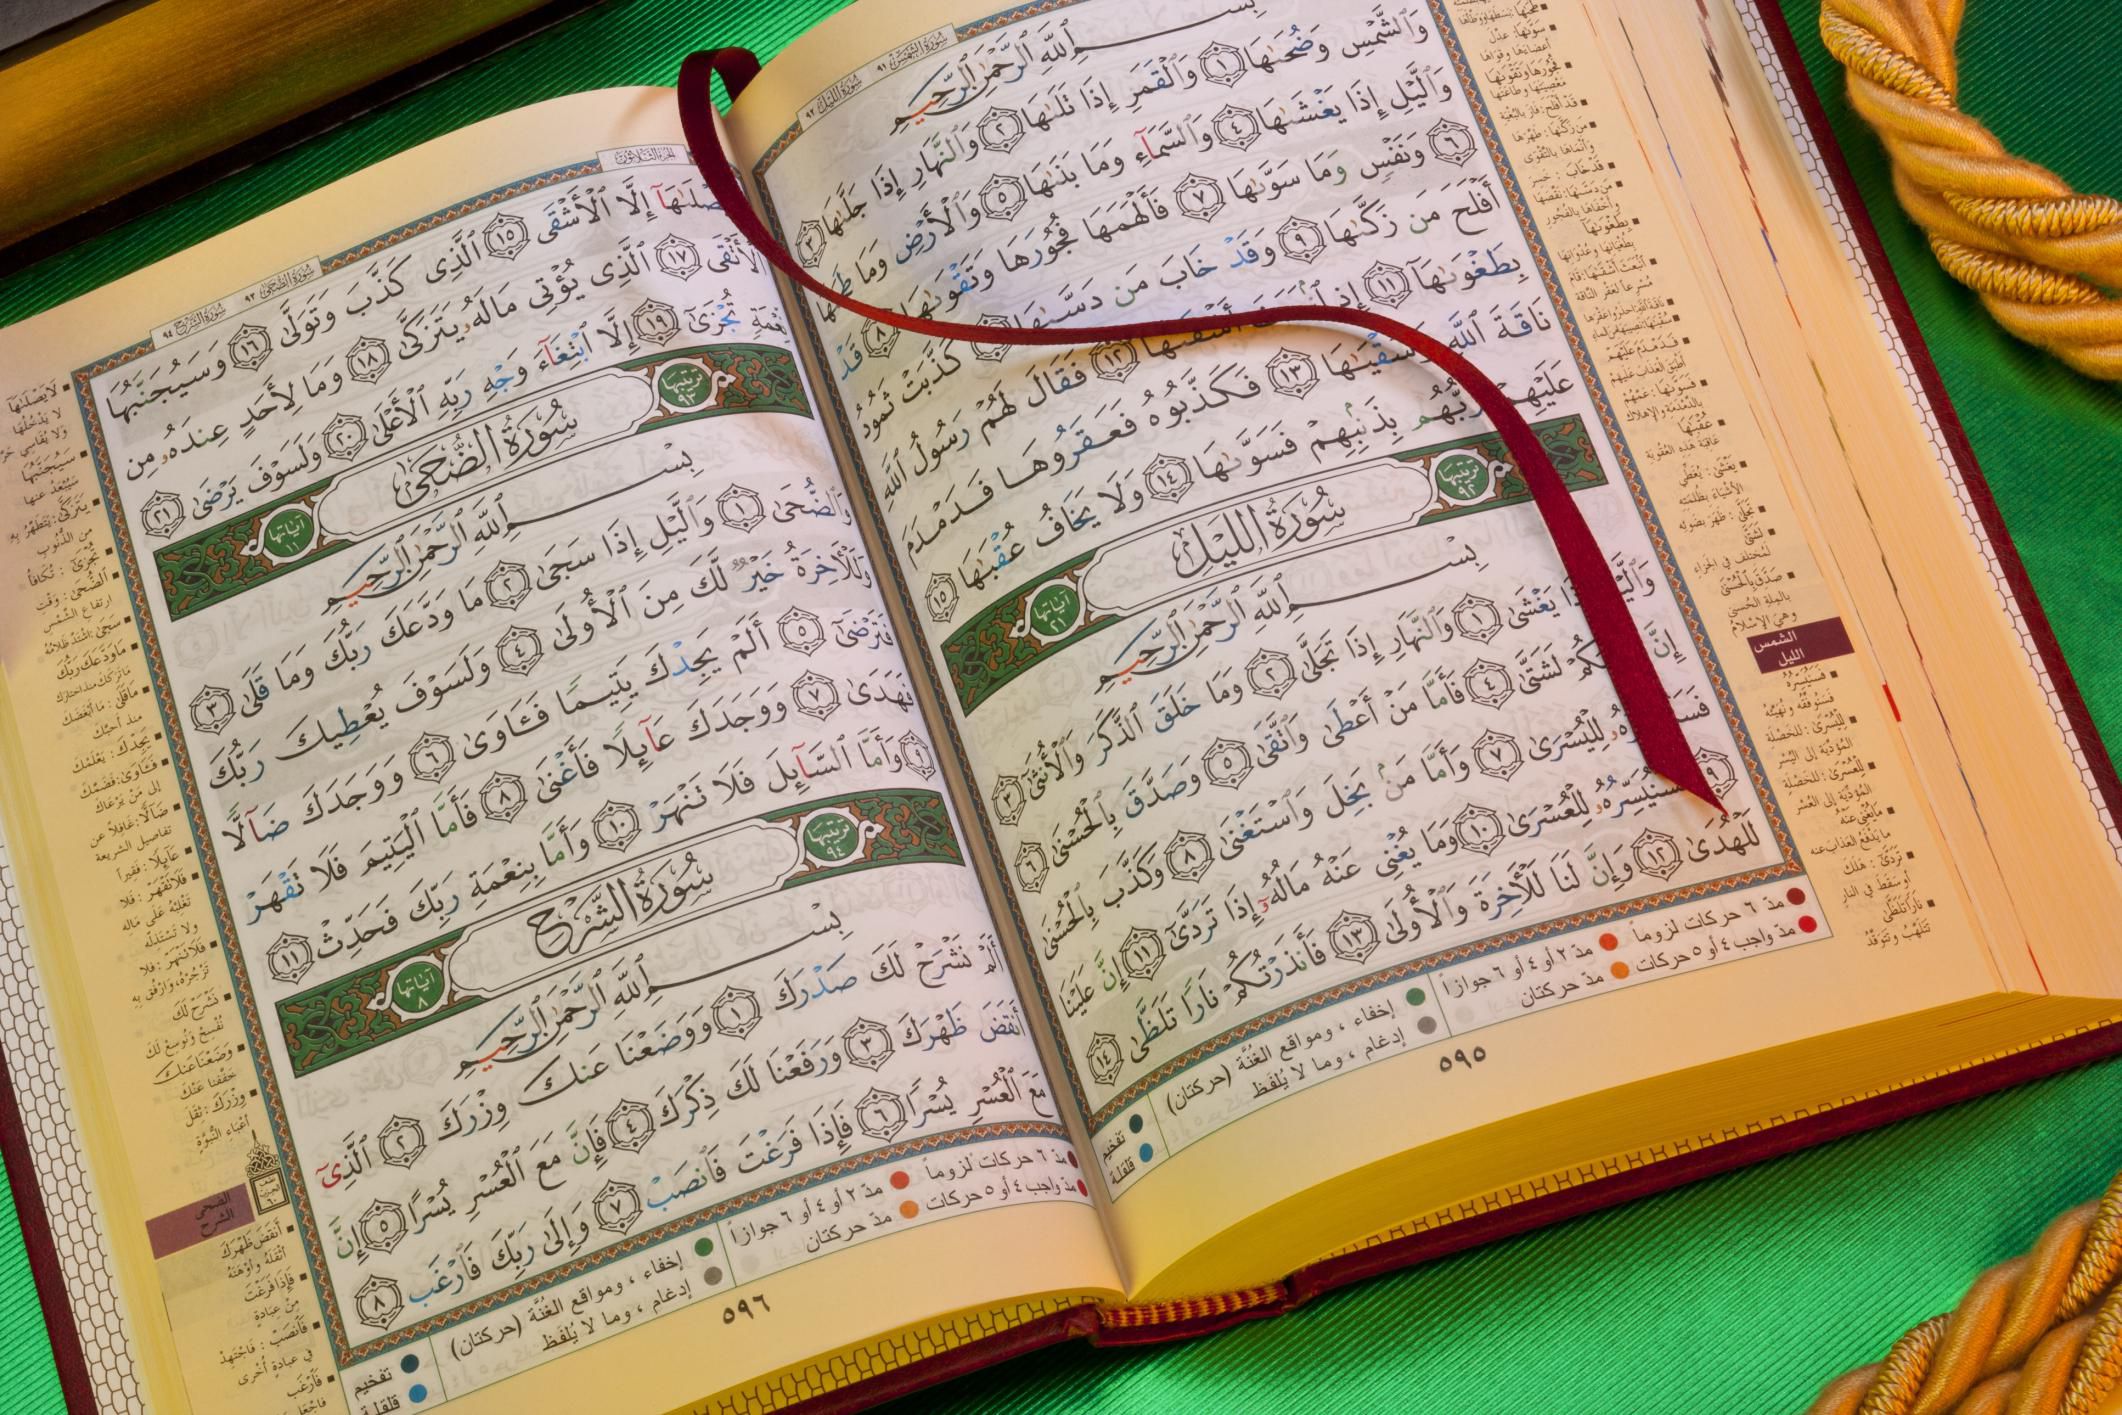 سُورَةُ الشَّمْسِ ٩١
سُورَةُ اللَّيْلِ ٩٢
بِسْمِ ٱللَّهِ ٱلرَّحْمَٰنِ ٱلرَّحِيمِ
وَٱلشَّمْسِ وَضُحَىٰهَا ١ وَٱلْقَمَرِ إِذَا تَلَىٰهَا ٢ وَٱلنَّهَارِ إِذَا جَلَّىٰهَا ٣
وَٱلَّيْلِ إِذَا يَغْشَىٰهَا ٤ وَٱلسَّمَآءِ وَمَا بَنَىٰهَا ٥ وَٱلْأَرْضِ وَمَا طَحَىٰهَا
٦ وَنَفْسٍ وَمَا سَوَّىٰهَا ٧ فَأَلْهَمَهَا فُجُورَهَا وَتَقْوَىٰهَا ٨ قَدْ
أَفْلَحَ مَن زَكَّىٰهَا ٩ وَقَدْ خَابَ مَن دَسَّىٰهَا كَذَّبَتْ ثَمُودُ
بِطَغْوَىٰهَآ ١١ إِذِ ١٢ فَقَالَ لَهُمْ رَسُولُ ٱللَّهِ
نَاقَةَ ٱللَّهِ وَسُقْيَٰهَا ١٣ فَكَذَّبُوهُ فَعَقَرُوهَا فَدَمْدَمَ
عَلَيْهِمْ رَبُّهُم بِذَنۢبِهِمْ فَسَوَّىٰهَا ١٤ وَلَا يَخَافُ عُقْبَٰهَا ١٥
ترتيبها ٩٢ سُورَةُ اللَّيْلِ آياتها ٢١
بِسْمِ ٱللَّهِ ٱلرَّحْمَٰنِ ٱلرَّحِيمِ
وَٱلَّيْلِ إِذَا يَغْشَىٰ ١ وَٱلنَّهَارِ إِذَا تَجَلَّىٰ ٢ وَمَا خَلَقَ ٱلذَّكَرَ وَٱلْأُنثَىٰٓ ٣
إِنَّ لَشَتَّىٰ ٤ فَأَمَّا مَنْ أَعْطَىٰ وَٱتَّقَىٰ ٥ وَصَدَّقَ بِٱلْحُسْنَىٰ ٦
لِلْيُسْرَىٰ ٧ وَأَمَّا مَنۢ بَخِلَ وَٱسْتَغْنَىٰ ٨ وَكَذَّبَ بِٱلْحُسْنَىٰ
٩ فَسَنُيَسِّرُهُۥ لِلْعُسْرَىٰ ١٠ وَمَا يُغْنِى عَنْهُ مَالُهُۥٓ إِذَا تَرَدَّىٰٓ ١١ إِنَّ عَلَيْنَا
لَلْهُدَىٰ ١٢ وَإِنَّ لَنَا لَلْأَخِرَةَ وَٱلْأُولَىٰ ١٣ فَأَنذَرْتُكُمْ نَارًا تَلَظَّىٰ ١٤
مدّ ٦ حركات لزوماً مدّ ٢ أو ٤ أو ٦ جوازاً إخفاء ، ومواقع الغُنَّة (حركتان) تفخيم
مدّ واجب ٤ أو ٥ حركات مدّ حركتان إدغام ، وما لا يُلفَظ قلقلة
٥٩٥
سَوَّىٰهَا: عدّل
أعضاءها وقواها
فُجُورَهَا وَتَقْوَىٰهَا:
معصيتها وطاعتها
قَدْ أَفْلَحَ: فاز بالبُغية
مَن زَكَّىٰهَا: طهّرها
وأنماها بالتقوى
قَدْ خَابَ: خسر
مَن دَسَّىٰهَا: نقصها
وأخفاها بالفجور
بِطَغْوَىٰهَا:
بطغيانها وعدوانها
ٱنۢبَعَثَ أَشْقَىٰهَا: قام
مسرعاً لعقر الناقة
فَدَمْدَمَ عَلَيْهِمْ:
أطبق العذاب عليهم
فَسَوَّىٰهَا: عمّهم
بالدمدمة والإهلاك
عُقْبَٰهَا:
عاقبة هذه العقوبة
يَغْشَىٰ: يغطّي
الأشياء بظلمته
تَجَلَّىٰ: ظهر بضوئه
لَشَتَّىٰ:
لمختلف في الجزاء
صَدَّقَ بِٱلْحُسْنَىٰ
بالملة الحسنى
وهي الإسلام
الشمس
الليل
فَسَنُيَسِّرُهُ
فسنوفّقه ونهيّئه
لِلْيُسْرَىٰ: للخصلة
المؤدّية إلى اليُسر
لِلْعُسْرَىٰ: للخصلة
المؤدّية إلى العُسر
مَا يُغْنِي عَنْهُ
ما يدفع العذاب عنه
تَرَدَّىٰ: هلك
أو سقط في النار
نَارًا تَلَظَّىٰ
تتلهّب وتتوقّد
الجزء الثلاثون
سُورَةُ الضُّحَىٰ ٩٣
سُورَةُ الشَّرْحِ ٩٤
إِلَّا ٱلْأَشْقَى ١٥ ٱلَّذِى كَذَّبَ وَتَوَلَّىٰ ١٦ وَسَيُجَنَّبُهَا
ٱلْأَتْقَى ١٧ ٱلَّذِى يُؤْتِى مَالَهُۥ يَتَزَكَّىٰ ١٨ وَمَا لِأَحَدٍ عِندَهُۥ مِن
نِّعْمَةٍ تُجْزَىٰٓ ١٩ إِلَّا ٱبْتِغَآءَ وَجْهِ رَبِّهِ ٱلْأَعْلَىٰ ٢٠ وَلَسَوْفَ يَرْضَىٰ ٢١
ترتيبها ٩٣ سُورَةُ الضُّحَىٰ آياتها ١١
بِسْمِ ٱللَّهِ ٱلرَّحْمَٰنِ ٱلرَّحِيمِ
وَٱلضُّحَىٰ ١ وَٱلَّيْلِ إِذَا سَجَىٰ ٢ مَا وَدَّعَكَ رَبُّكَ وَمَا قَلَىٰ ٣
وَلَلْأَخِرَةُ خَيْرٌ لَّكَ مِنَ ٱلْأُولَىٰ ٤ وَلَسَوْفَ يُعْطِيكَ رَبُّكَ
فَتَرْضَىٰٓ ٥ أَلَمْ يَجِدْكَ يَتِيمًا فَـَٔاوَىٰ ٦ وَوَجَدَكَ ضَآلًّا
فَهَدَىٰ ٧ وَوَجَدَكَ عَآئِلًا فَأَغْنَىٰ ٨ فَأَمَّا ٱلْيَتِيمَ فَلَا تَقْهَرْ
٩ وَأَمَّا ٱلسَّآئِلَ فَلَا تَنْهَرْ ١٠ وَأَمَّا بِنِعْمَةِ رَبِّكَ فَحَدِّثْ ١١
ترتيبها ٩٤ سُورَةُ الشَّرْحِ آياتها ٨
بِسْمِ ٱللَّهِ ٱلرَّحْمَٰنِ ٱلرَّحِيمِ
أَلَمْ نَشْرَحْ لَكَ صَدْرَكَ ١ وَوَضَعْنَا عَنكَ وِزْرَكَ ٢ ٱلَّذِىٓ
أَنقَضَ ظَهْرَكَ ٣ وَرَفَعْنَا لَكَ ذِكْرَكَ ٤ فَإِنَّ مَعَ ٱلْعُسْرِ يُسْرًا ٥ إِنَّ
مَعَ ٱلْعُسْرِ يُسْرًا ٦ فَإِذَا فَرَغْتَ فَٱنصَبْ ٧ وَإِلَىٰ رَبِّكَ فَٱرْغَب ٨
مدّ ٦ حركات لزوماً مدّ ٢ أو ٤ أو ٦ جوازاً إخفاء ، ومواقع الغُنَّة (حركتان) تفخيم
مدّ واجب ٤ أو ٥ حركات مدّ حركتان إدغام ، وما لا يُلفَظ قلقلة
٥٩٦
لَا يَصْلَىٰهَا
لا يدخلها
سَيُجَنَّبُهَا
سيُبعَد عنها
يَتَزَكَّىٰ: يتطهّر به
من الذنوب
تُجْزَىٰ: تُكافأ
ٱلضُّحَىٰ: وقت
ارتفاع الشمس
سَجَىٰ: اشتدّ ظلامه
مَا وَدَّعَكَ رَبُّكَ
ما تركك منذ اختارك
مَا قَلَىٰ: ما أبغضك
منذ أحبّك
يَجِدْكَ: يعلمك
فَـَٔاوَىٰ: فضمّك
إلى من يرعاك
ضَآلًّا: غافلاً عن
تفاصيل الشريعة
عَآئِلًا: فقيراً
فَلَا تَقْهَرْ: فلا
تغلبه على ماله
ولا تستذلّه
فَلَا تَنْهَرْ: فلا
تزجره، وارفق به
نَشْرَحْ لَكَ
نفسح ونوسع لك
وَضَعْنَا عَنكَ
خفّفنا عنك
وِزْرَكَ: ثقل
أعباء النبوّة
الضحى
الشرح
أَنقَضَ ظَهْرَكَ
أثقله وأوهنه
فَإِذَا فَرَغْتَ
من عبادة
فَٱنصَبْ: فاجتهد
في عبادة أخرى
فَٱرْغَب